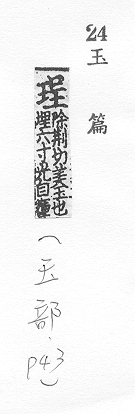 24
玉篇
珵
除荆切美玉也
埋六寸光自輝
(玉部.P43)